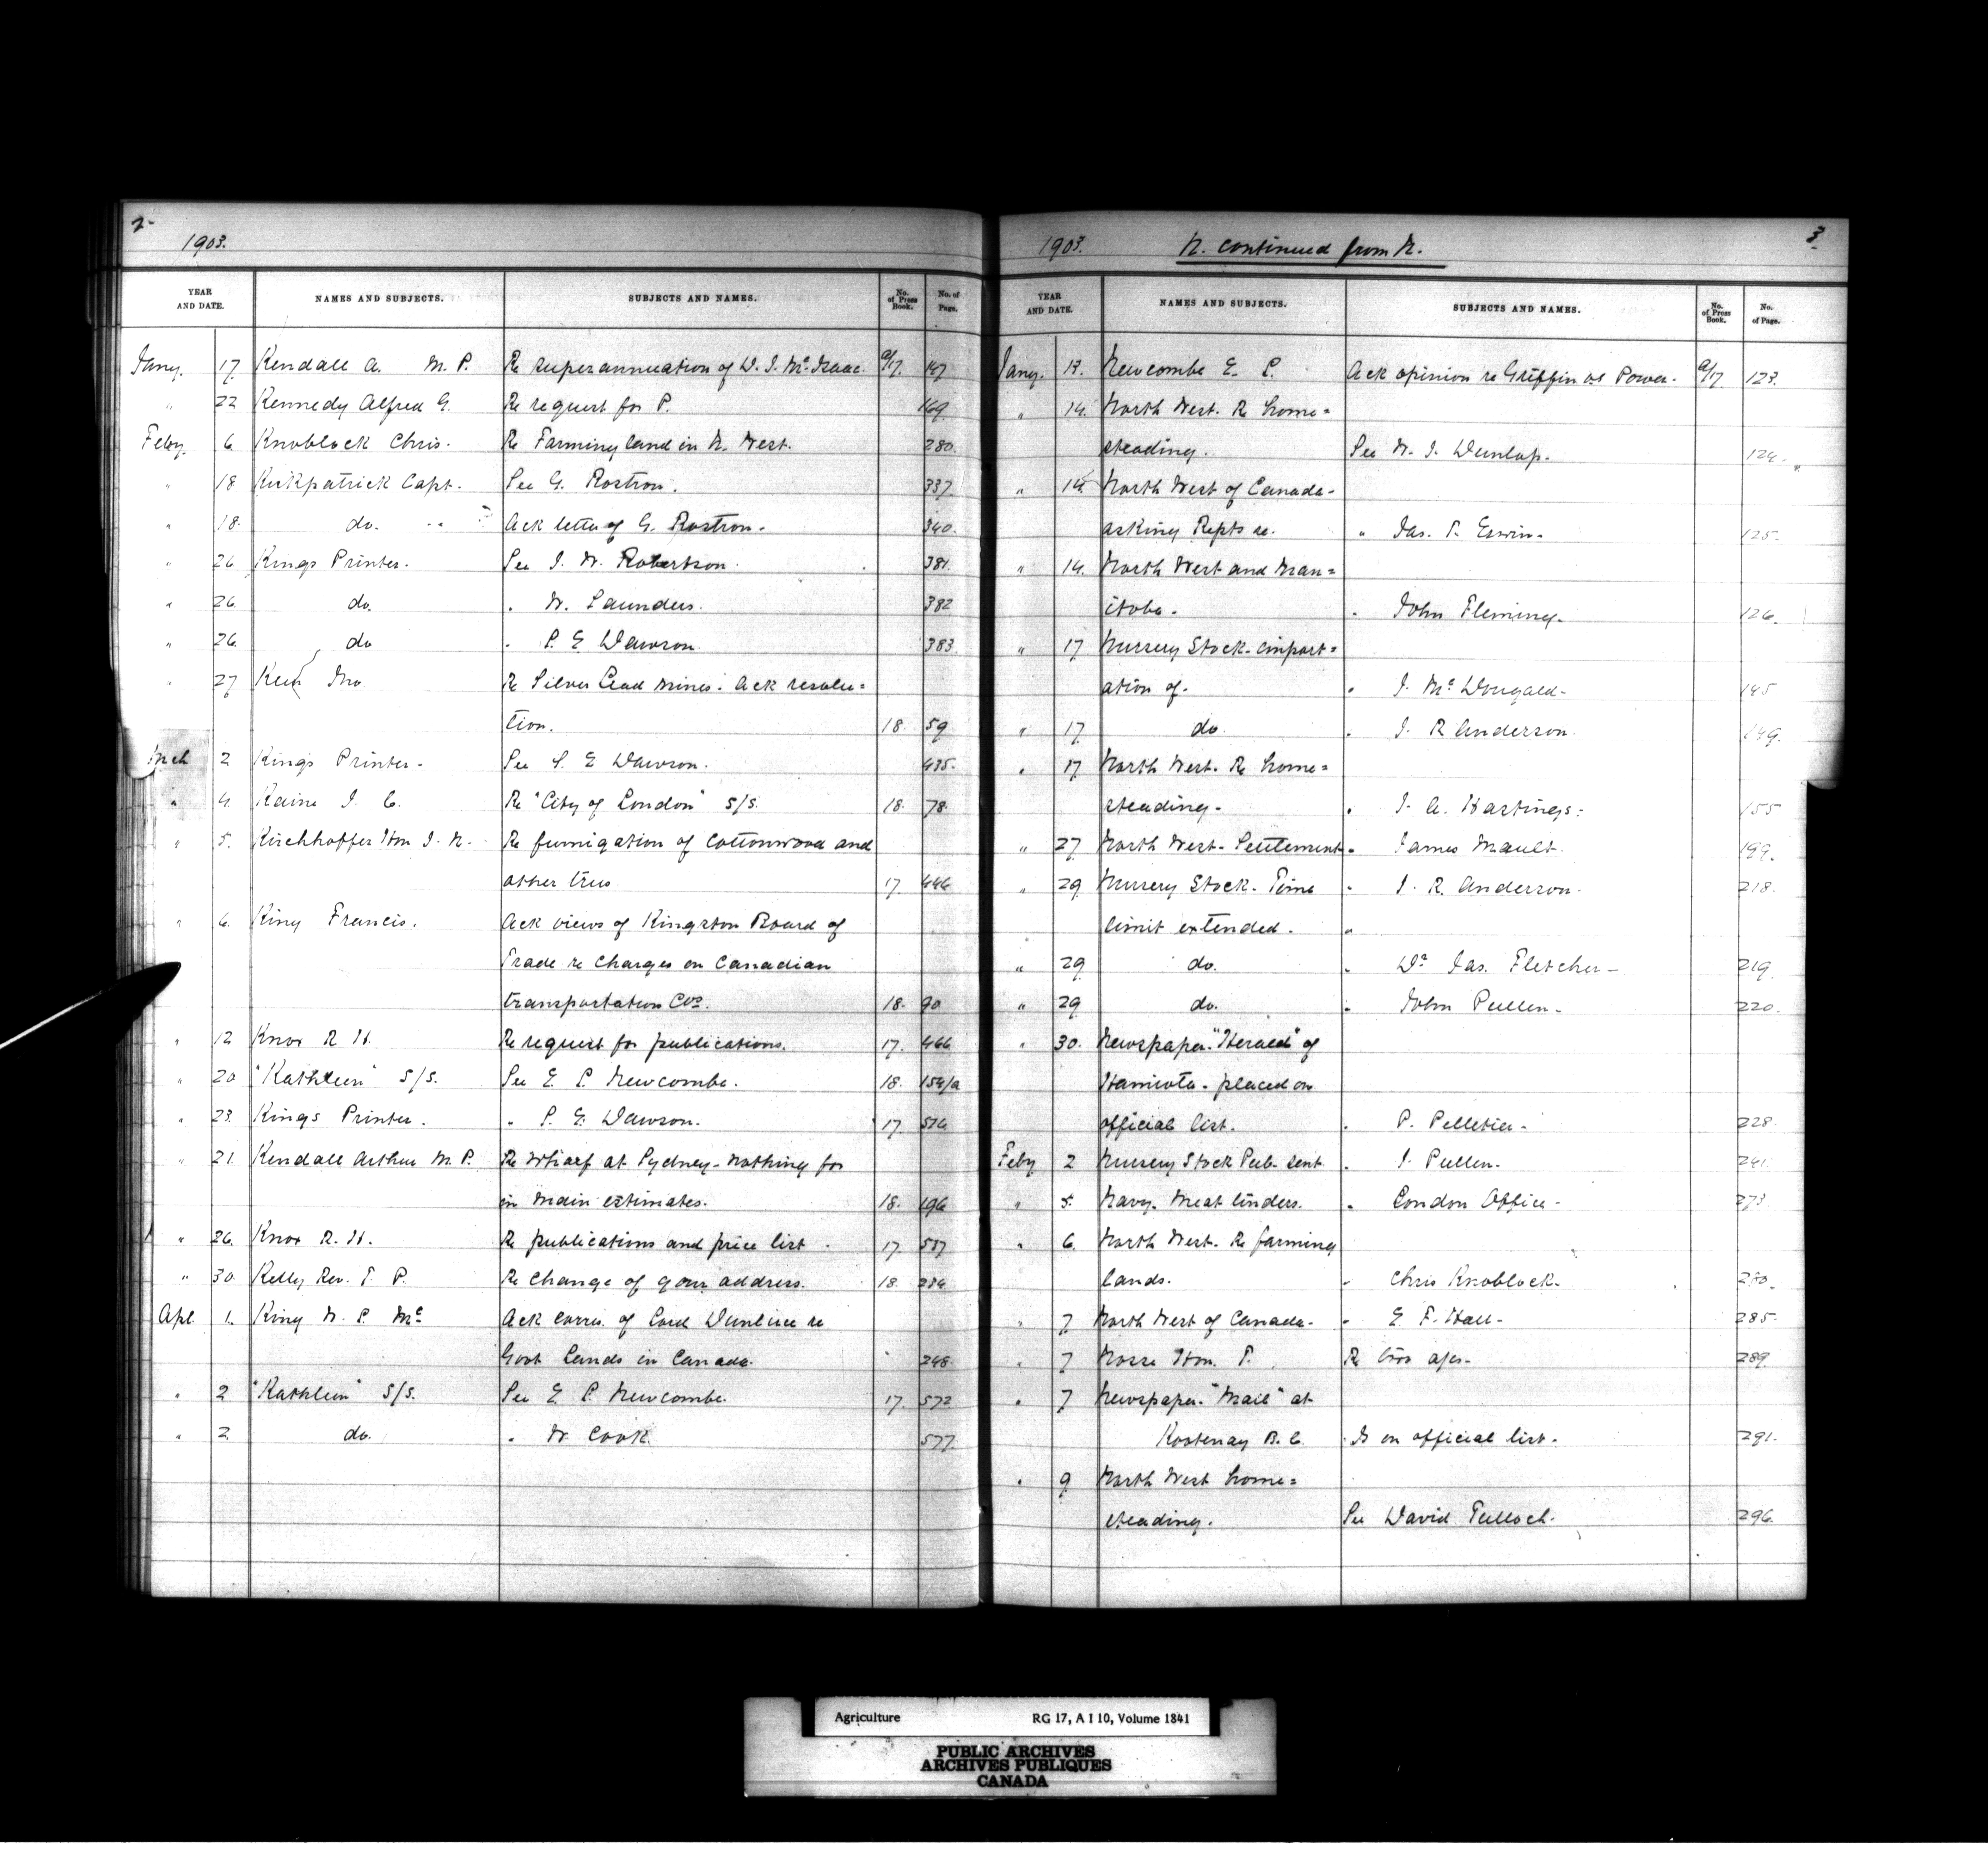 2-
1903.
YEAR AND DATE. NAMES AND SUBJECTS. SUBJECTS AND NAMES. No. of Press Book. No. of Page.
Jany. 17 Kendall A. M. P. Re superannuation of D. J. McIsaac. a/17. 147
" 22 Kennedy Alfred G. Re request for P. 169
Feby. 6 Knoblock Chris. Re Farming land in N. West. 280.
" 18 Kirkpatrick Capt. See G. Rostron. 337.
" 18. do. Ack letter of G. Rostron. 340.
" 26 Kings Printer. See J. W. Robertson. 381.
" 26. do. " W. Saunders. 382
" 26. do " S. E. Dawson. 383
" 27 Jno Re Silver Lead Mines. Ack resolu=
tion. 18. 59
Mch 2 Kings Printer. See S. E. Dawson. 435.
" 4. Kaine J. C. Re "City of London" S/S. 18. 78.
" 5. Kirchhoffer Hon J. N. Re fumigation of Cottonwood and
other trees 17. 446
" 6. King Francis. Ack views of Kingston Board of
Trade re Charges on Canadian
transportation Cos. 18. 90
" 12 Knox R. H. Re request for publications. 17. 466
" 20 "Kathleen" S/S. See E. L. Newcombe. 18. 154/a
" 23. Kings Printer. " S. E. Dawson. 17.
" 21. Kendall Arthur M. P. Re Wharf at Sydney - nothing for
in Main estimates. 18. 196
" 26. Knox R. H. Re publications and price list. 17. 517
" 30. Kelly Rev. T. P. Re change of your address. 18. 234
Apl. 1. King W. S. Mc Ack corres. of Lord Dunluce re
Govt Lands in Canada. " 248
" 2 "Kathleen" S/S. See E. L. Newcombe. 17. 572
" 2 do. " W. Cook. 577.
3.
1903. N. continued from N.
YEAR AND DATE. NAMES AND SUBJECTS. SUBJECTS AND NAMES. No. of Press Book. No. of Page.
Jany. 13. Newcombe E. L. Ack opinion re Griffin vs Power. a/17 123.
" 14. North West. Re home=
steading. See W. J. Dunlop. 124.
" 14. North West of Canada-
asking Repts re. " Jas. T. Erwin. 125.
" 14. North West and Man=
itoba. " John Fleming. 126.
" 17 Nursery Stock- import=
ation of. " J. McDougald- 145
" 17 do. " J. R. Anderson. 149.
" 17 North West. Re home=
steading. " J. A. Hastings. 155
" 27 North West- Settlement " James Mault. 199.
" 29 Nursery Stock. Time " J. R. Anderson. 218.
limit extended. "
" 29 do. " Dr Jas. Fletcher- 219.
" 29 do. " John Pullen. 220.
" 30. Newspaper. "Herald" of
Hamiota. placed on
official list. " P. Pelletier. 228.
Feby 2 Nursery Stock Pub. sent " J. Pullen. 241.
" 5. Navy. Meat tinders. " London Office- 273.
" 6. North West. Re farming
lands. " Chris Knoblock. 280.
" 7 North West of Canada- " E. F. Hall- 285.
" 7 Nosse Hon. T. Re two a/cs- 289.
" 7 Newspaper. "Mail" at
Kootenay B. C. Is on official list. 291.
" 9 North West home=
steading. See David Tulloch. 296.
Agriculture RG 17, A I 10, Volume 1841
PUBLIC ARCHIVES
ARCHIVES PUBLIQUES
CANADA